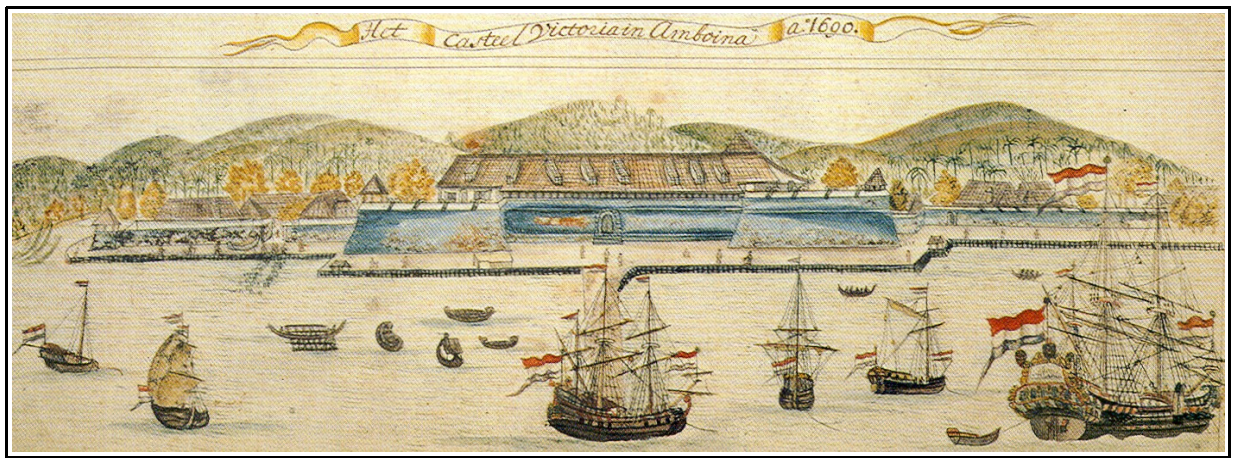 Het Casteel Victoria in Amboina a.º 1690.